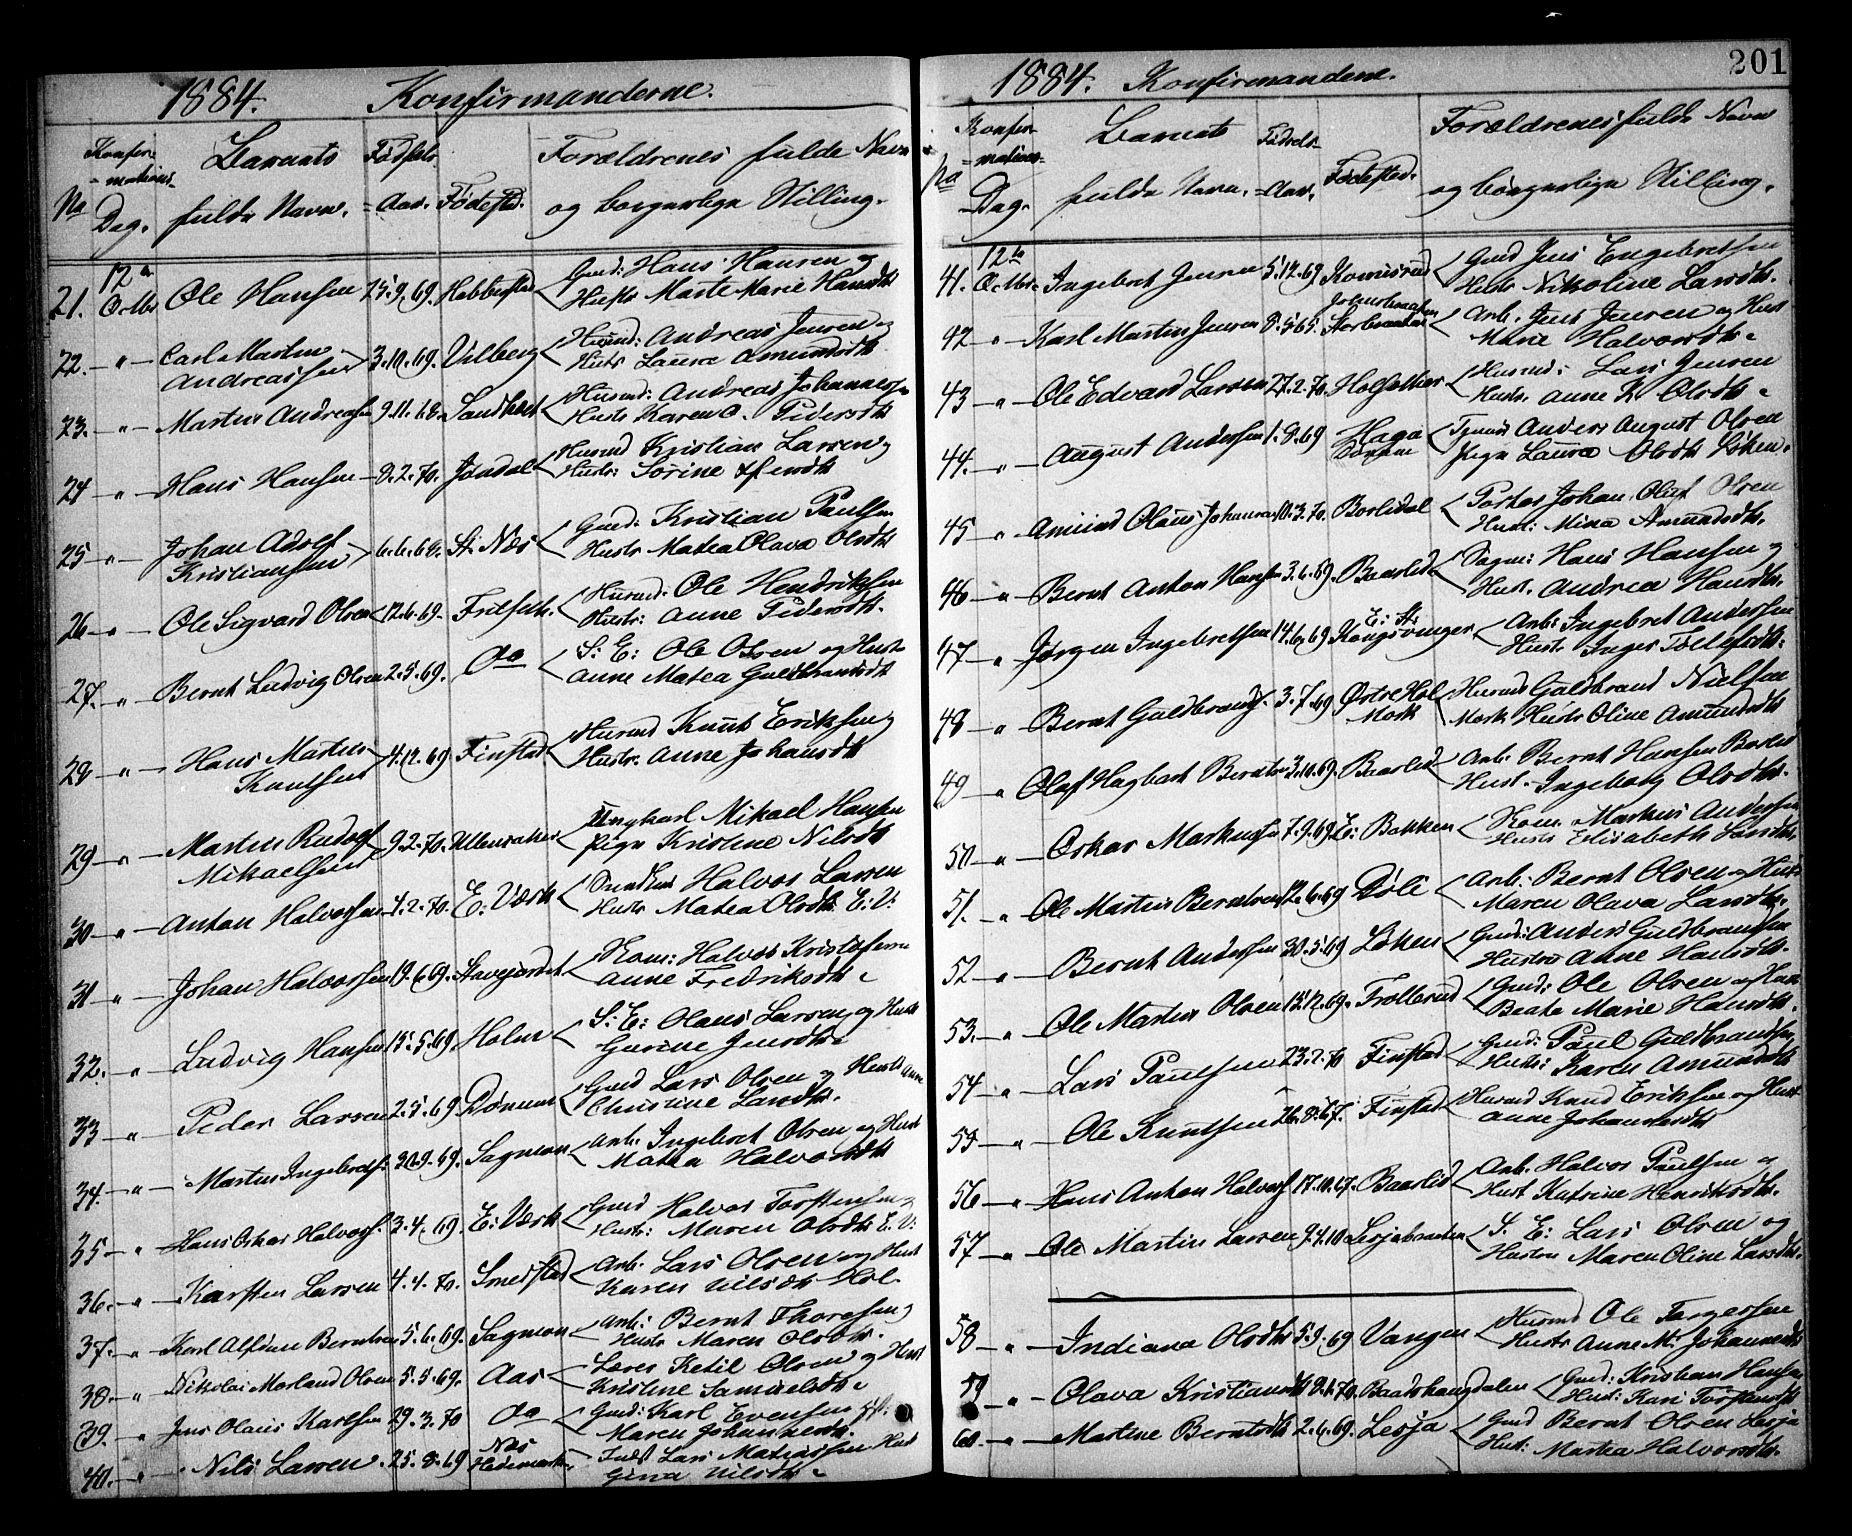 1884. Konfirmanderne.
No Konfirmations-Dag. Barnets fulde Navn. Fødsels-Aar. Fødested. Forældrenes fulde Navn og borgerlige Stilling.
21. 12te Octbr Ole Hansen 25.9.69. Habberstad Gmd: Hans Hansen og
Hustr Marte Marie Hansdtr
22. " Carl Martin Andreassen 3.10.69. Vilberg Husmd: Andreas Jensen og
Hustr Laura Amundsdtr
23. " Martin Andreassen 9.11.68. Husmd: Andreas Johannessen
Hustr Karen A. Pedersdtr
24 " Hans Hansen 8.2.70. Jødal Husmd Kristian Larsen og
Hustr: Sørine
25 " Johan Adolf Kristiansen 6.6.68. St. Næs Gmd: Kristian Paulsen
Hustr Matea Olava Olsdtr
26 " Ole Sigvard Olsen 12.6.69. Husmd: Ole Hendriksen
Hustr: Anne Pedersdtr.
27. " Bernt Ludvig Olsen 2.5.69. Do S: E: Ole Olsen og Hustr
Anne Matea Guldbrandsdtr
28 " Hans Martin Knutsen 4.12.69. Finstad Husmd Knut Eriksen og
Hustr. Anne Johansdtr
29 " Martin Rudolf Mikaelsen 9.2.70. Ullensaker Ungkarl Mikael Hansen
Pige Kristine Nilsdtr
30 " Anton Halvorsen 4.2.70. E: Værk Halvor Larsen
Hustr Matea Olsdtr E: V:
31 " Johan Halvorsen 19.6.69. Halvor Kristofersen
Anne Fredriksdtr
32. " Ludvig Hansen 15.5.69 Holm S: E: Olaus Larsen og Hustr
Gurine Jensdtr
33 " Peder Larsen 2.5.69 Dønnum Gmd Lars Olsen og Hustr Anne
Christine Larsdtr.
34. " Martin Ingebretsf. 30.9.69. Sagmoen Arb. Ingebret Olsen og Hustr
Matea Halvorsdtr
35 " Hans Oskar Halvorsf. 3.4.69 E: Værk Gmd Halvor Torstensen og
Hustr: Maren Olsdtr E: V:
36. " Karsten Larsen 4.4.70. Smedstad Arb. Lars Olsen og Hustr
Karen Nilsdtr Hol.
37. " Karl Alfred Berntsen 5.6.69. Sagmoen Arb: Bernt Thoresen og
Hustr Maren Olsdtr.
38. " Nikolai Morland Olsen 5.5.69. Aas Lærer Ketil Olsen og Hustr
Kristine Samuelsdtr
39. " Jens Olaus Karlsen 29.3.70 Do Gmd: Karl Evensen og
Maren Johannesdtr.
40. " Nils Larsen. 25.8.69 Næs Hedemark Lars Matiassen Hust
Gina Nilsdtr
201
1884. Konfirmanderne.
No Konfirmations-Dag. Barnets fulde Navn. Fødsels-Aar. Fødested. Forældrenes fulde Navn og borgerlige Stilling.
41. 12te Octbr. Ingebret Jensen 5.12.69 Gmd Jens Engebretsen
Hustr Nikoline Larsdtr.
42 " Karl Martin Jensen 8.5.65. Arb. Jens Jensen og Hust
Marie Halvorsdtr.
43 " Ole Edvard Larsen 27.2.70. Husmd: Lars Jensen
Hustr. Anne K. Olsdtr.
44. " August Andersen 1.8.69 Haga Anders August Olsen
Pige Laura Olsdtr Løken.
45 " Amund Olaus Johansen 10.3.70. Borlidal Johan Oluf Olsen
Hust: Mina Amundsdtr.
46 " Bernt Anton Hansen 3.6.69. Baarlid Hans Hansen og
Hust. Andrea Hansdtr.
47 " Jørgen Ingebretsen 14.6.69 E: St. Kongsvinger Arb: Ingebret Andersen
Hustr. Inger
48 " Bernt Guldbrandsf. 3.7.69 Østre Hol Mork Husmd Guldbrand Nielsen
Mork Hustr Oline Amundsdtr
49 " Olaf Hagbart Berntsen 3.10.69. Baarlid Arb. Bernt Hansen Baarlid
Hust. Ingeborg Olsdtr.
50 " Oskar Markussen 7.9.69. Ls: Bakken Kom. Markus Andersen
Hustr Elisabeth Larsdtr.
51. " Ole Martin Berntsen 12.6.69 Døli Arb: Bernt Olsen og Hustr
Maren Olava Larsdtr.
52 " Bernt Andersen 30.5.69 Løken Gmd: Anders Guldbrandsen
Hustru Anne Hansdtr.
53. " Ole Martin Olsen 15.12.69. Trollerud Gmd: Ole Olsen og Hust
Beate Marie Hansdtr.
54 " Lars Paulsen 23.2.70 Finstad Gmd: Paul Guldbrandsen
Hustr: Karen Amundsdtr
55 " Ole Knutsen 26.8.67. Finstad Husmd Knud Eriksen og Hust
Anne Johannesdtr
56 " Hans Anton Halvorsf 17.10.67. Baarlid Arb. Halvor Paulsen og
Hust Katrine Henriksdtr.
57 " Ole Martin Larsen 9.4.70 Lesjabraaten S. E: Lars Olsen og
Hustru Maren Oline Larsdtr.
58 " Indiana Olsdtr 5.9.69 Vangen Husmd Ole Torgersen
Hustr Anne M. Johannesdtr
59 " Olava Kristiansdtr 9.1.70. Baadshaugdalen Gmd: Kristian Hansen
Hust: Kari Torstensdtr
60. " Martine Berntsdtr 2.6.69. Lesja Gmd Bernt Olsen Lesja
Hust: Martea Halvorsdtr.